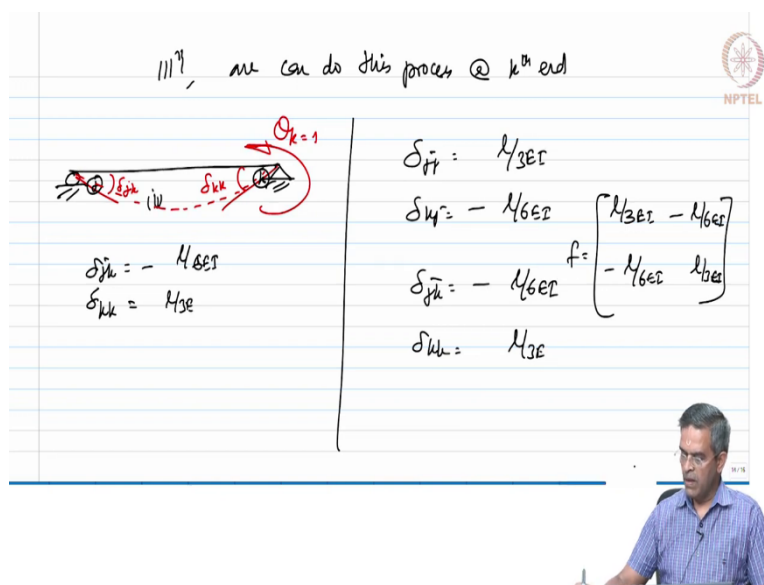 IIIly, we can do this process @ kth end
NPTEL
θk=1
j δjk δkk k
(i)
δjk = - l/6EI
δkk = l/3E
δjj = l/3EI
δkj = - l/6EI
δjk = - l/6EI
δkk = l/3E
f = [ l/3EI - l/6EI
- l/6EI l/3EI ]